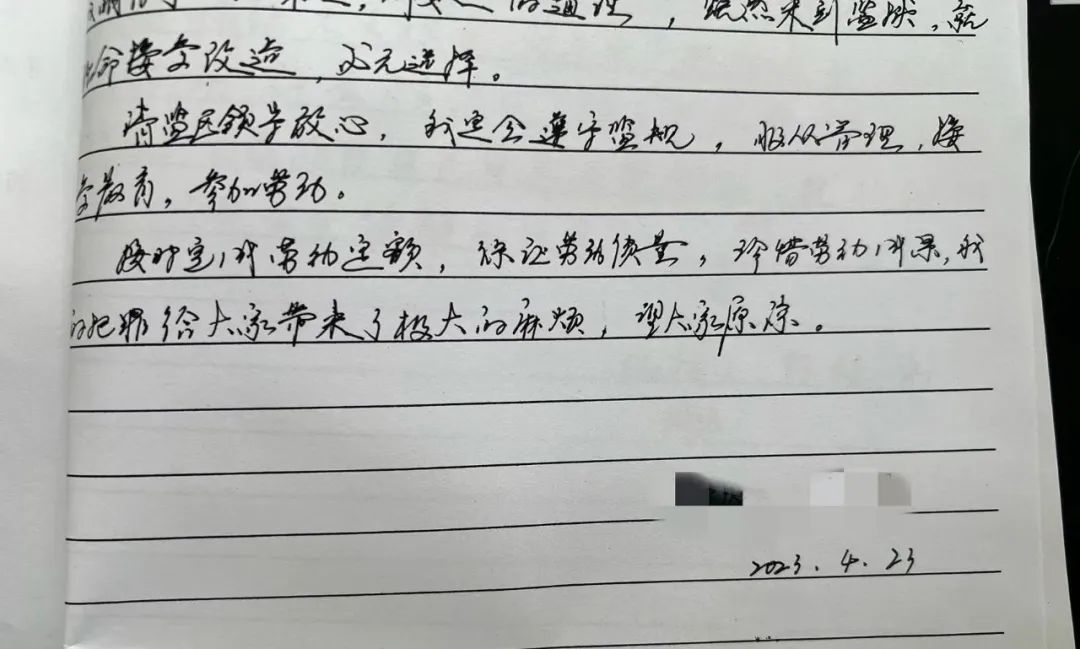 的道理，既然来到监狱，就
必须接受改造，别无选择。
请监区领导放心，我定会遵守监规，服从管理，接
受教育，参加劳动。
按时完成劳动定额，保证劳动质量，珍惜劳动成果，我
的犯罪给大家带来了极大的麻烦，望大家原谅。
2023.4.23